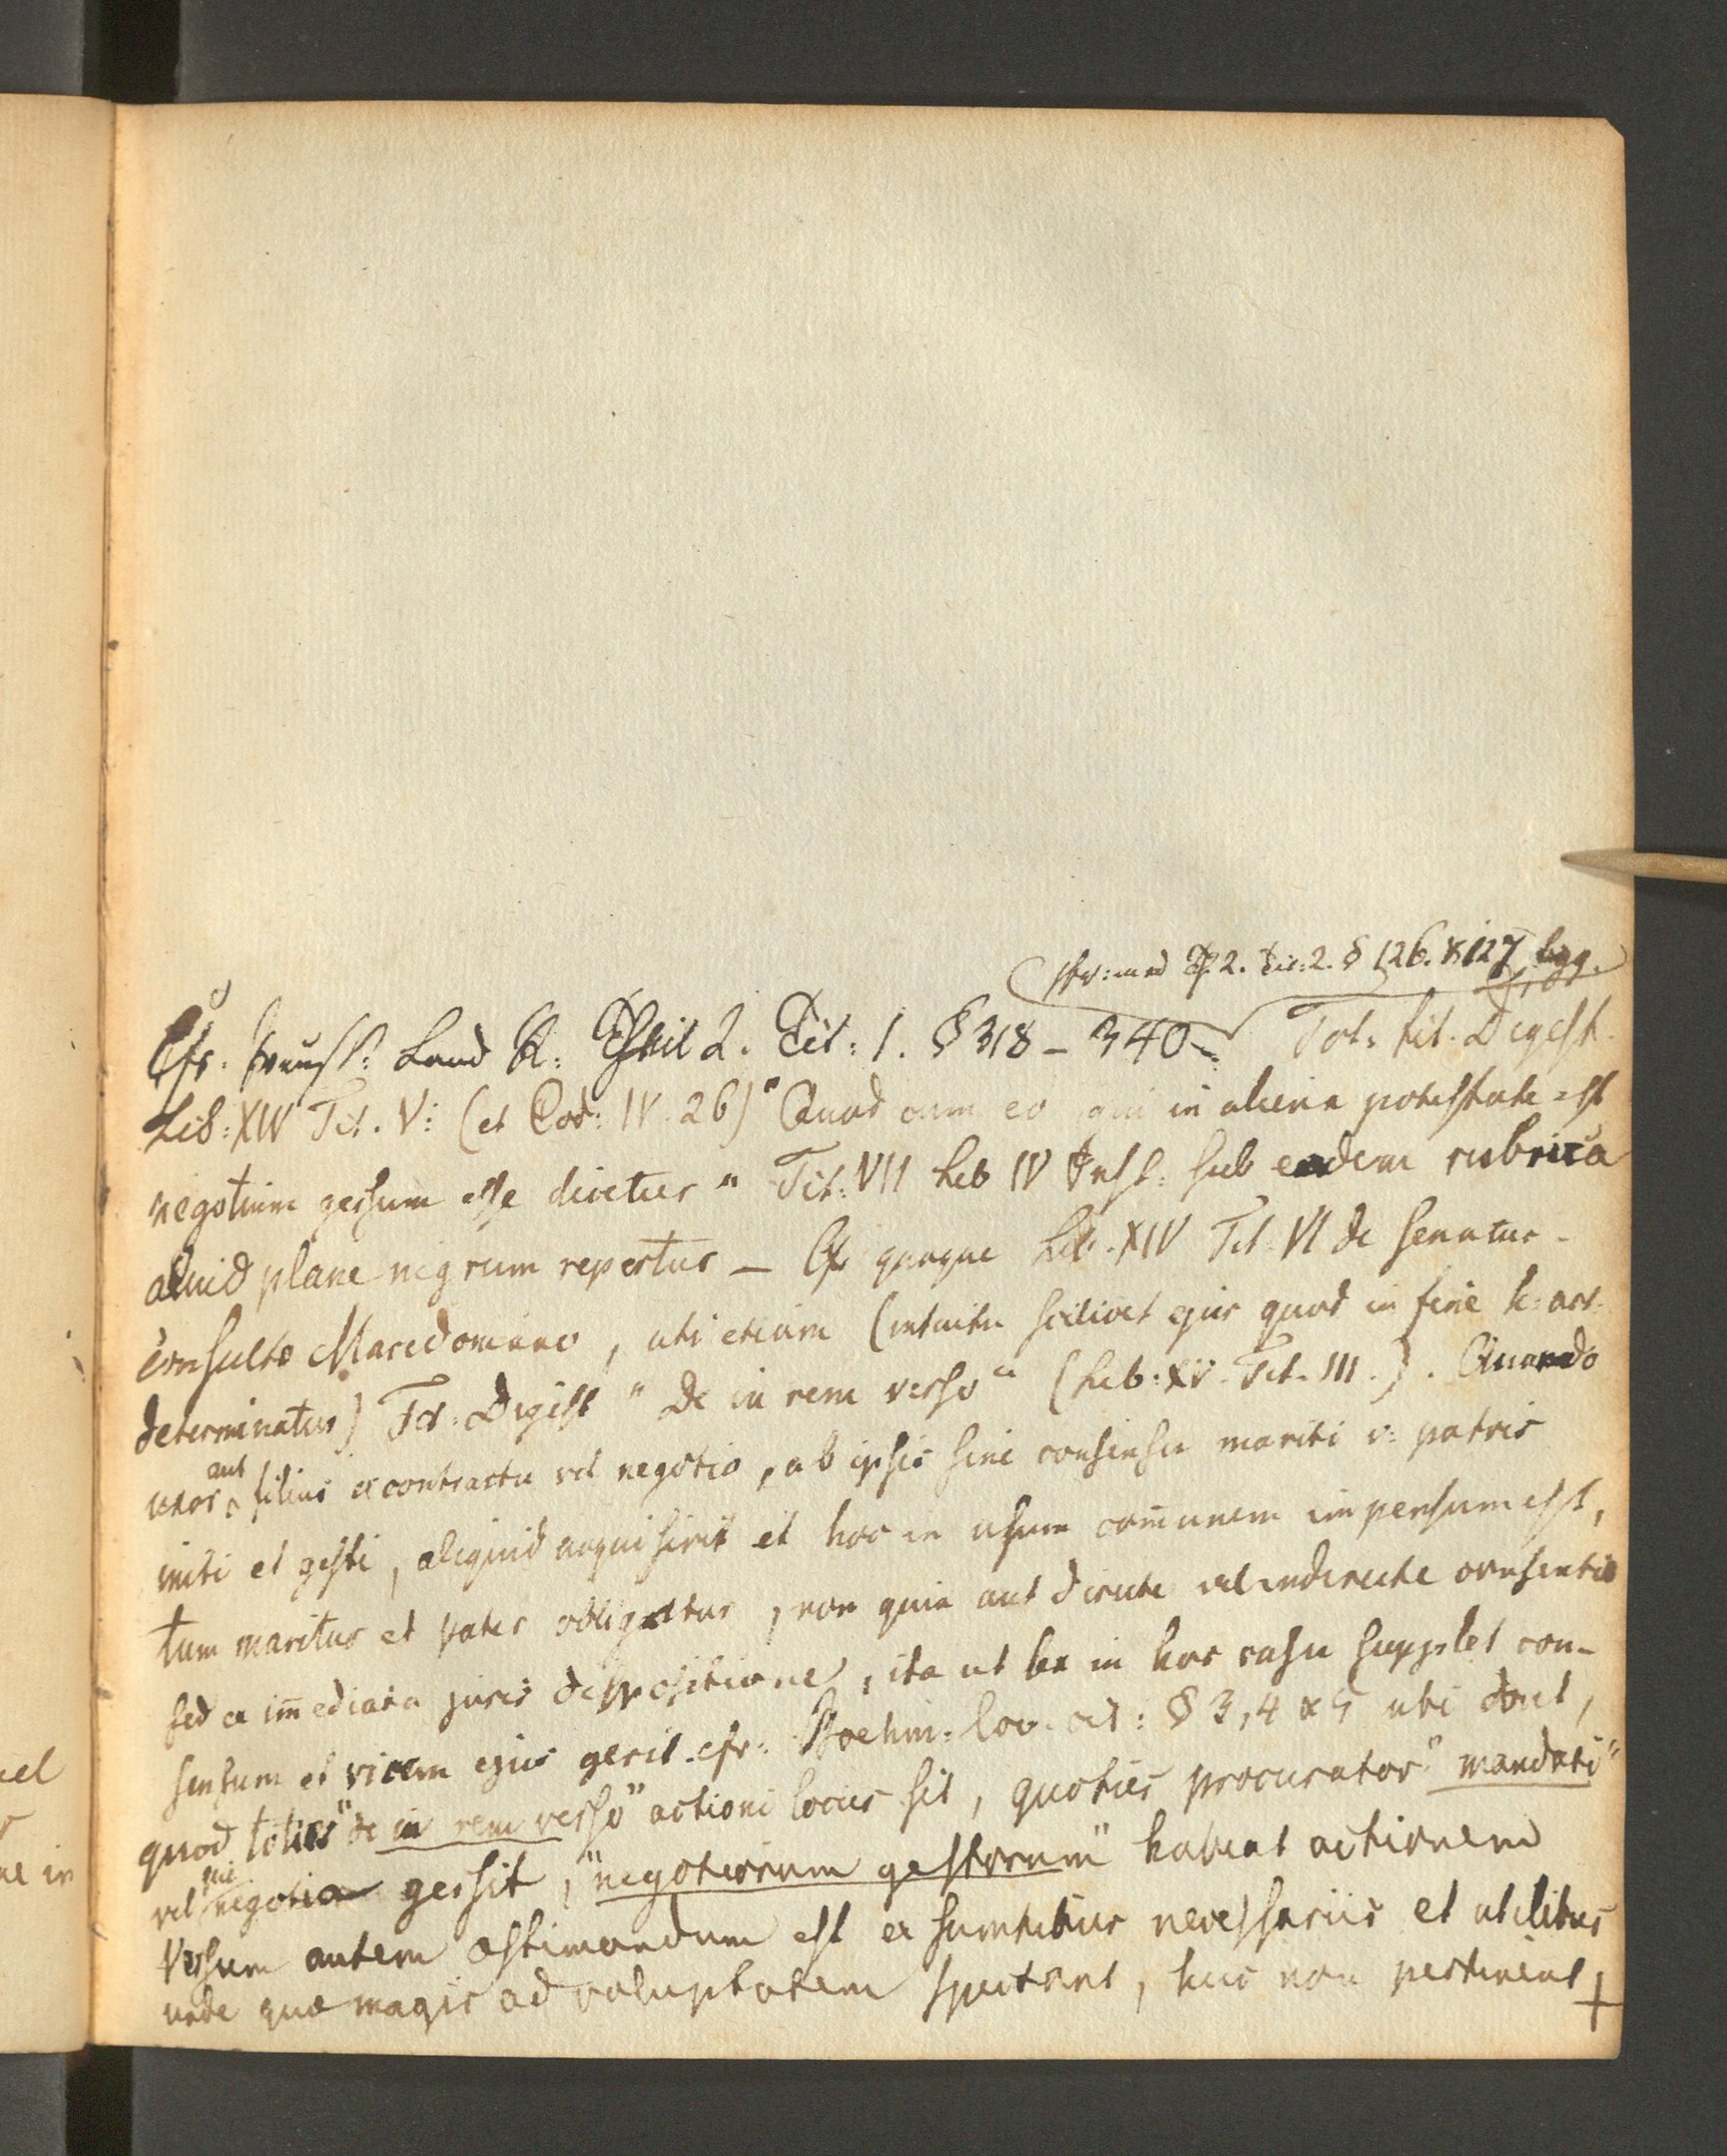 cfr: med Th. 2. Tit: 2. § 126. & 127 sqq.
Cfr. Preuss: Land R: Theil 2. Tit: 1. § 318 - 340 - Tot: tit. Digest.
Lib: XIV Tit. V: (et Cod: IV. 26) "Quod cum eo qui in aliena potestate est
negotium gestum esse dicetur" Tit: VII Lib IV Inst: sub eadem rubrica
aliud plane nigrum repertur — Cfr quoque Lib. XIV Tit. VI de senatus-
consulto Macedoniano, uti etiam (intuitu scilicet ejus quod in fine h: art:
determinatur) Tit. Digest "De in rem verso" (Lib: XV. Tit. III.). Quando
uxor aut filius ex contractu vel negotio, ab ipsis sine consensu mariti v: patris
initi et gesti, aliquid acquisivit et hoc in usum communem impensum est,
tum maritus et pater obligatur, non quia aut directe vel indirecte consentit
sed ex immediata juris dispositione, ita ut lex in hoc casu supplet con-
sensum et vicem ejus gerit. cfr: Boehm: loc. cit: § 3, 4 & 5 ubi docet,
quod toties "de in rem verso" actioni locus sit, quoties procurator "mandati"
vel qui negotia gessit, "negotiorum gestorum" habeat actionem
Versum autem æstimandum est ex sumtibus necessariis et utilibus
unde quæ magis ad voluptatem spectant, huc non pertineat +
vel
ne in